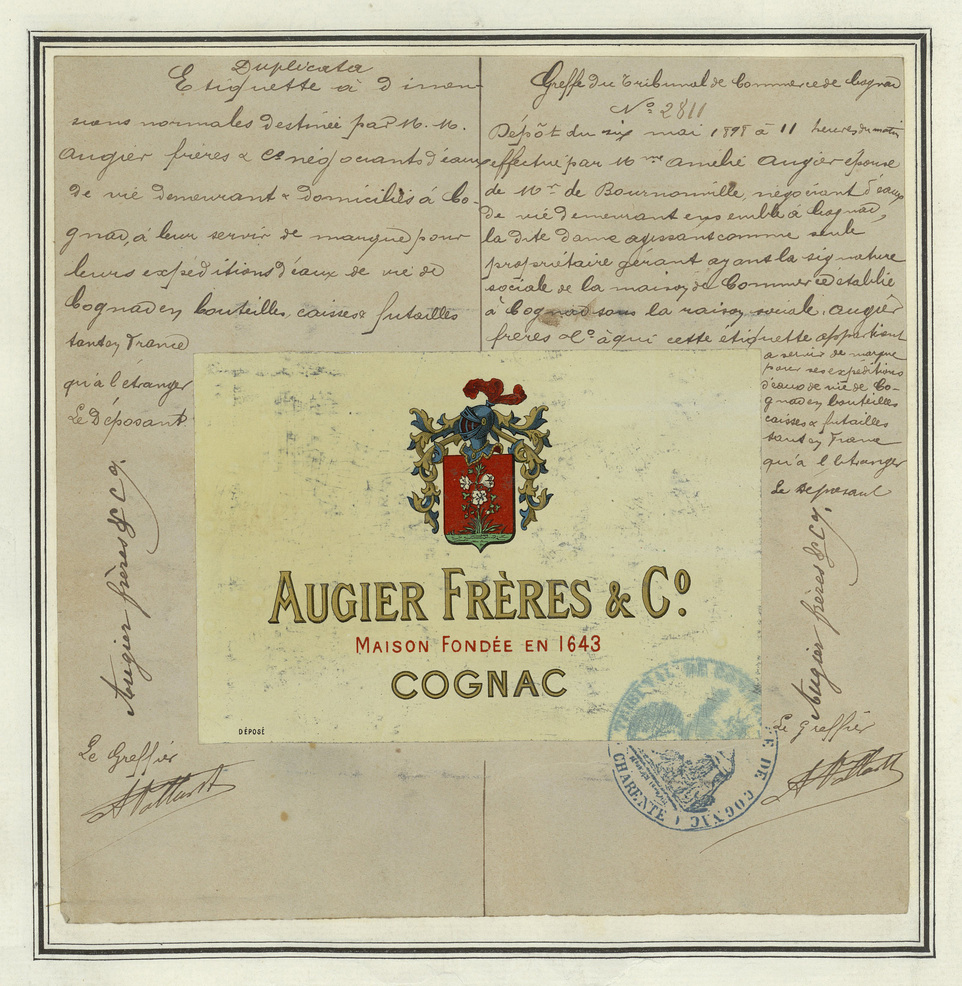 Duplicata
Etiquette à dimen-
sions normales destinée par M. M.
Augier frères & Cº négociants d'eaux
de vie demeurant & domiciliés à Co-
gnac, à leur servir de marque pour
leurs expéditions d'eaux de vie de
Cognac en bouteilles, caisses & futailles
tant en France
qu'à l'étranger
Le Déposant
Augier frères & Cº
Le Greffier
Greffe du Tribunal de Commerce de Cognac
Nº 2811
Dépôt du six mai 1898 à 11 heures du matin
effectué par Mme Amélie Augier épouse
de Mr. de Bournonville, négociant d'eaux
de vie demeurant ensemble à Cognac,
la dite dame agissant comme seule
propriétaire gérant ayant la signature
sociale de la maison de Commerce établie
à Cognac sous la raison sociale, Augier
frères & Cº à qui cette étiquette appartient
a servir de marque
pour ses expéditions
d'eaux de vie de Co-
gnac en bouteilles
caisses & futailles
tant en France
qu'à l'étranger
Le Déposant
Augier frères & Cº
Le Greffier
AUGIER FRÈRES & Cº.
MAISON FONDÉE EN 1643
COGNAC
DÉPOSÉ
TRIBUNAL DE COMMERCE DE COGNAC
CHARENTE